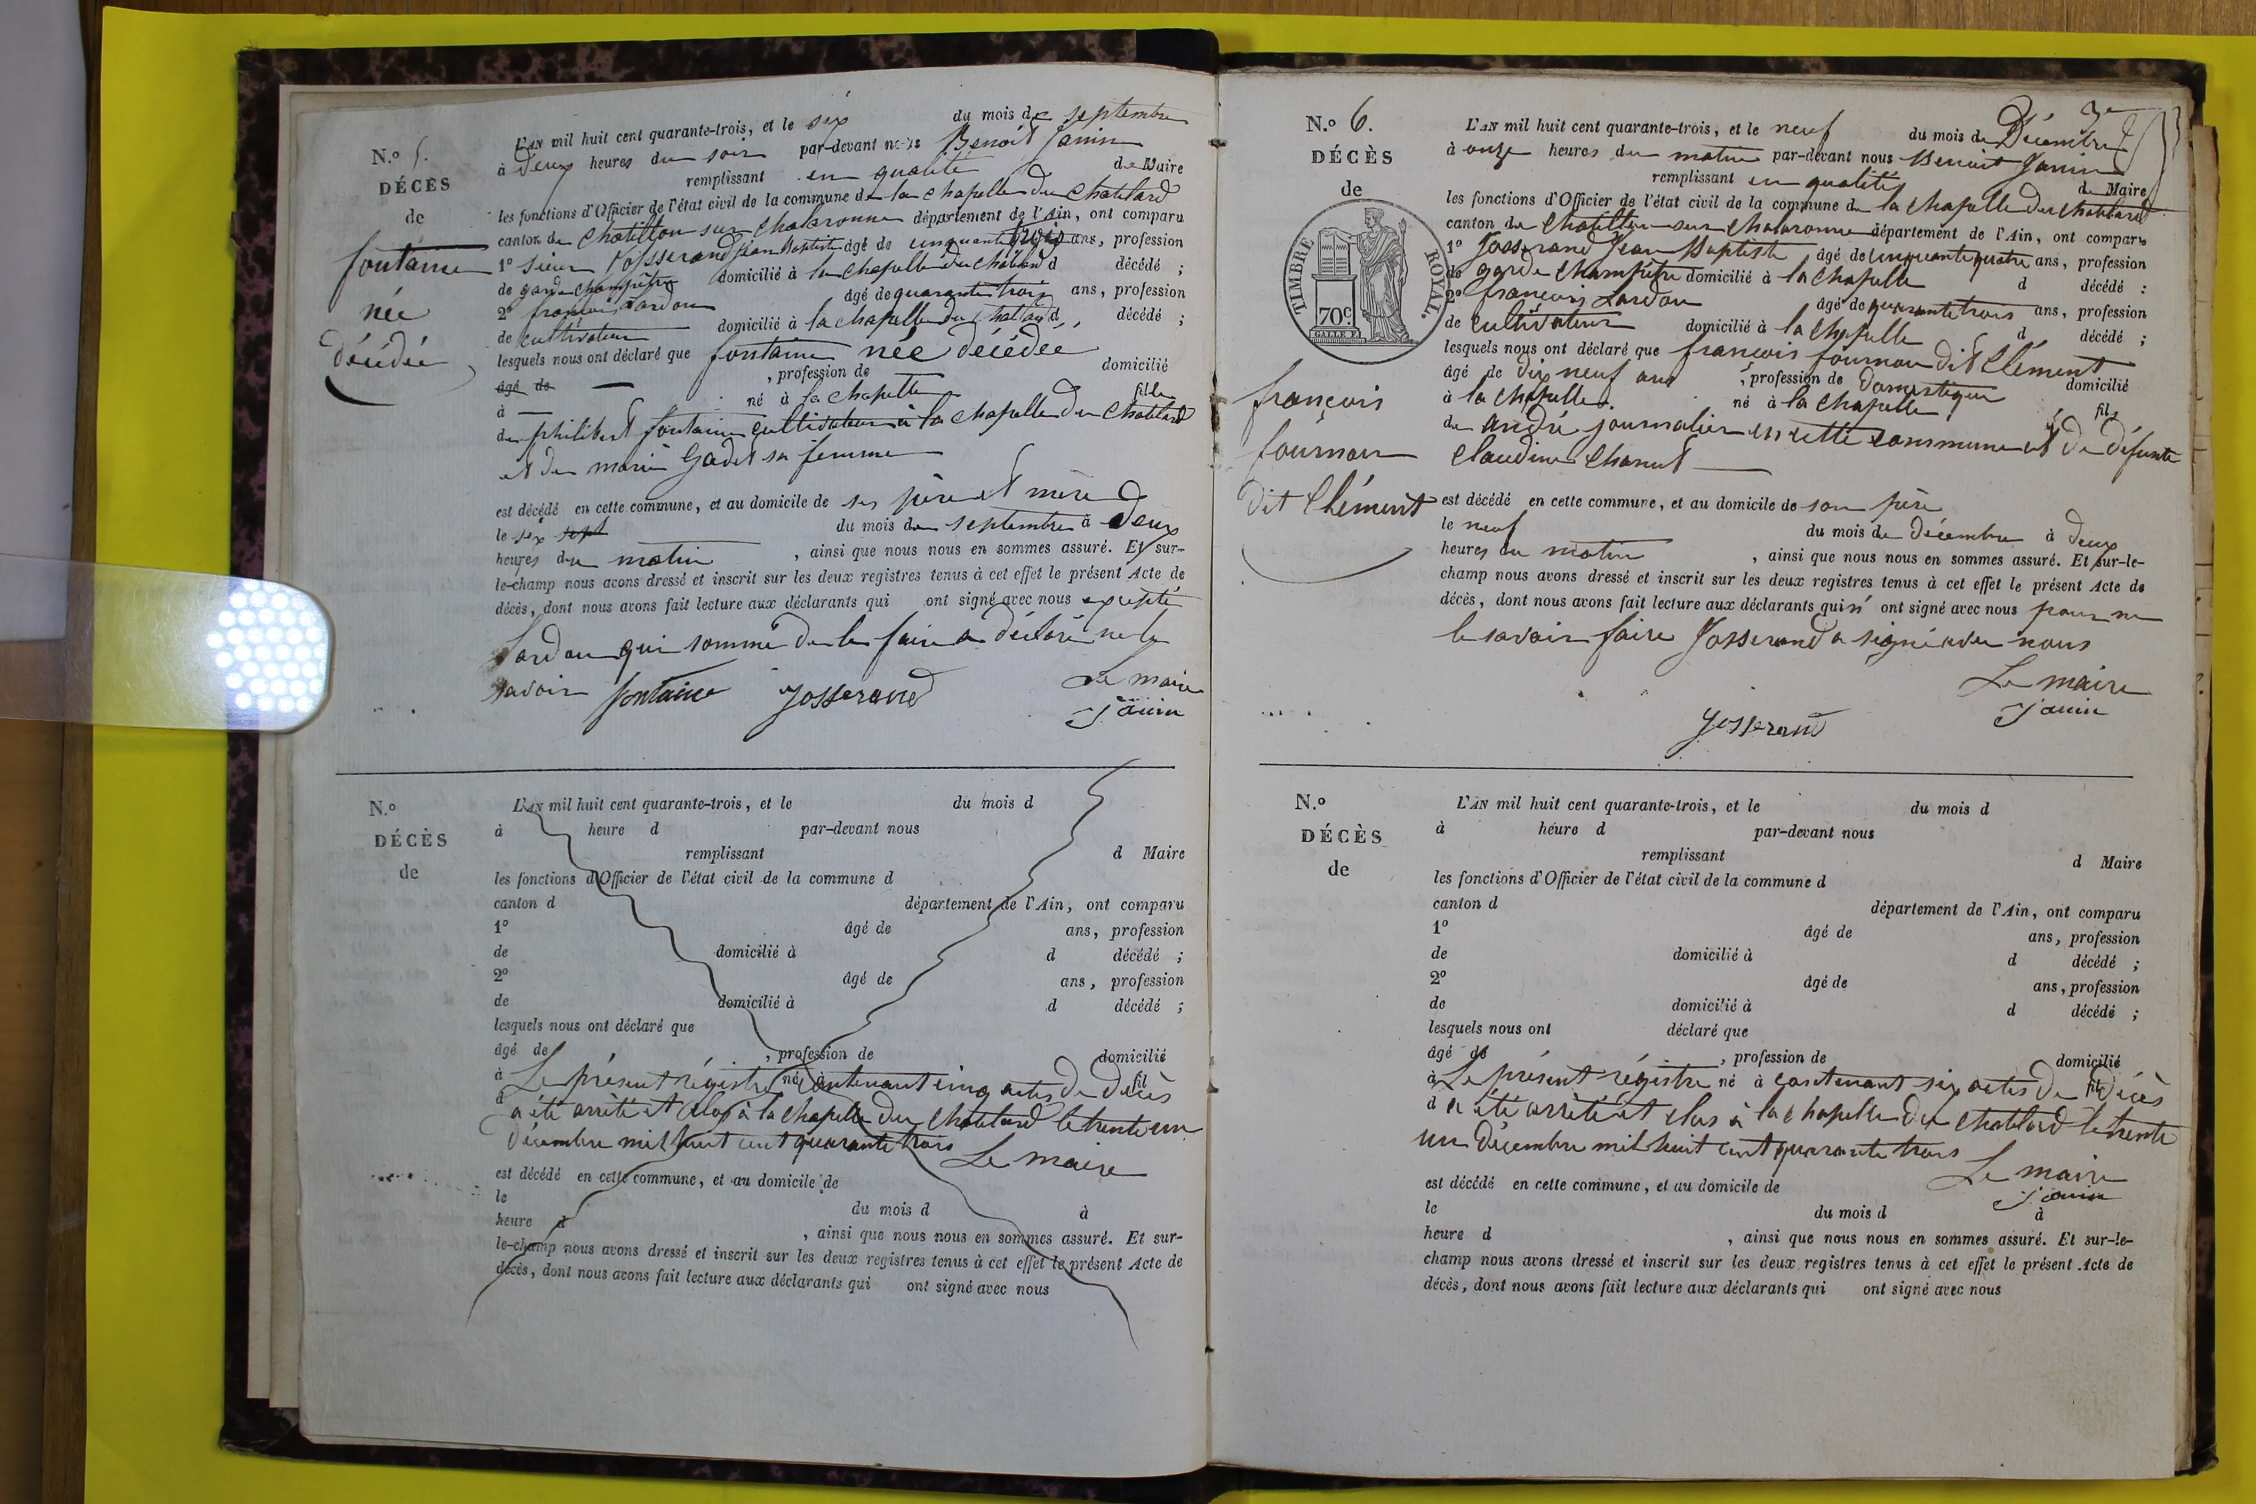 N.º 5.
DÉCÈS
de
fontaine
née
décédée
L'AN mil huit cent quarante-trois, et le six du mois de septembre
à deux heures du soir par-devant nous Benoit Janin
remplissant en qualité de Maire
les fonctions d'Officier de l'état civil de la commune de la chapelle du chatelard
canton de chatillon sur chalaronne département de l'Ain, ont comparu
1º sieur Josserand jean Baptiste âgé de cinquante trois ans, profession
de garde champêtre domicilié à la chapelle du chatelard d décédé ;
2º françois Lardon âgé de quarante trois ans, profession
de cultivateur domicilié à la chapelle du chatelard d décédé ;
lesquels nous ont déclaré que fontaine née décédée
âgé de , profession de domicilié
à né à la chapelle fille
de philibert fontaine cultivateur à la chapelle du chatelard
et de marie Gadet sa femme
est décédé en cette commune, et au domicile de ses père et mère
le six sept du mois de septembre à deux
heures du matin , ainsi que nous nous en sommes assuré. Et sur-
le-champ nous avons dressé et inscrit sur les deux registres tenus à cet effet le présent Acte de
décès, dont nous avons fait lecture aux déclarants qui ont signé avec nous excepté
Lardon qui sommé de le faire a déclaré ne le
savoir fontaine Josserand Le maire
janin
N.º
DÉCÈS
de
L'AN mil huit cent quarante-trois, et le du mois d
à heure d par-devant nous
remplissant d Maire
les fonctions d'Officier de l'état civil de la commune d
canton d département de l'Ain, ont comparu
1º âgé de ans, profession
de domicilié à d décédé ;
2º âgé de ans, profession
de domicilié à d décédé ;
lesquels nous ont déclaré que
âgé de , profession de domicilié
à né à fil
d
Le présent régistre contenant cinq actes de décès
a été arrêté et clos à la chapelle du chatelard le trente un
décembre mil huit cent quarante trois Le maire
est décédé en cette commune, et au domicile de
le du mois d à
heure d , ainsi que nous nous en sommes assuré. Et sur-
le-champ nous avons dressé et inscrit sur les deux registres tenus à cet effet le présent Acte de
décès, dont nous avons fait lecture aux déclarants qui ont signé avec nous
N.º 6.
DÉCÈS
de
TIMBRE ROYAL.
70c.
françois
fournon
dit Clément
L'AN mil huit cent quarante-trois, et le neuf du mois de Décembre
à onze heures du matin par-devant nous Benoit Janin
remplissant en qualité de Maire
les fonctions d'Officier de l'état civil de la commune de la chapelle du chatelard
canton de chatillon sur chalaronne département de l'Ain, ont comparu
1º Josserand Jean Baptiste âgé de cinquante quatre ans, profession
de garde champêtre domicilié à la chapelle d décédé ;
2º françois Lardon âgé de quarante trois ans, profession
de cultivateur domicilié à la chapelle d décédé ;
lesquels nous ont déclaré que françois fournon dit Clément
âgé de dix neuf ans , profession de domestique domicilié
à la chapelle. né à la chapelle fils
de andré journalier en cette commune et de défunte
Claudine Chanut
est décédé en cette commune, et au domicile de son père
le neuf du mois de décembre à deux
heures du matin , ainsi que nous nous en sommes assuré. Et sur-le-
champ nous avons dressé et inscrit sur les deux registres tenus à cet effet le présent Acte de
décès, dont nous avons fait lecture aux déclarants qui n' ont signé avec nous pour ne
le savoir faire Josserand a signé avec nous
Le maire
janin
Josserand
N.º
DÉCÈS
de
L'AN mil huit cent quarante-trois, et le du mois d
à heure d par-devant nous
remplissant d Maire
les fonctions d'Officier de l'état civil de la commune d
canton d département de l'Ain, ont comparu
1º âgé de ans, profession
de domicilié à d décédé ;
2º âgé de ans, profession
de domicilié à d décédé ;
lesquels nous ont déclaré que
âgé de , profession de domicilié
à né à fil
d
Le présent régistre contenant six actes de décès
a été arrêté et clos à la chapelle du chatelard le trente
un décembre mil huit cent quarante trois
Le maire
janin
est décédé en cette commune, et au domicile de
le du mois d à
heure d , ainsi que nous nous en sommes assuré. Et sur-le-
champ nous avons dressé et inscrit sur les deux registres tenus à cet effet le présent Acte de
décès, dont nous avons fait lecture aux déclarants qui ont signé avec nous